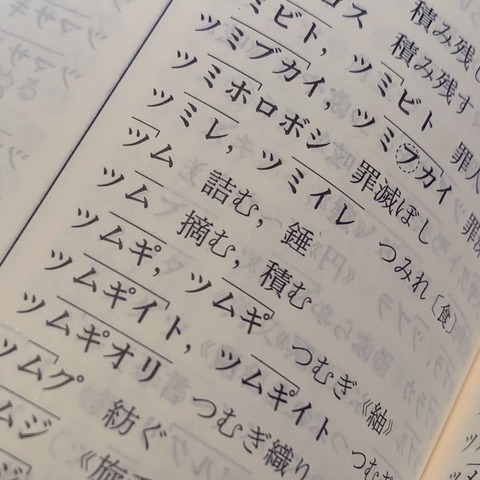 積み残し
積み残す
ミビト, ツミビト 罪人
ツミブカイ, ツミブカイ
ツミホロボシ 罪滅ぼし
ツミレ, ツミイレ つみれ [食]
ツム 詰む, 錘
ツム 摘む, 積む
ツムギ, ツムギ つむぎ《紬》
ツムギイト, ツムギイト
ツムギオリ つむぎ織り
ツムグ 紡ぐ